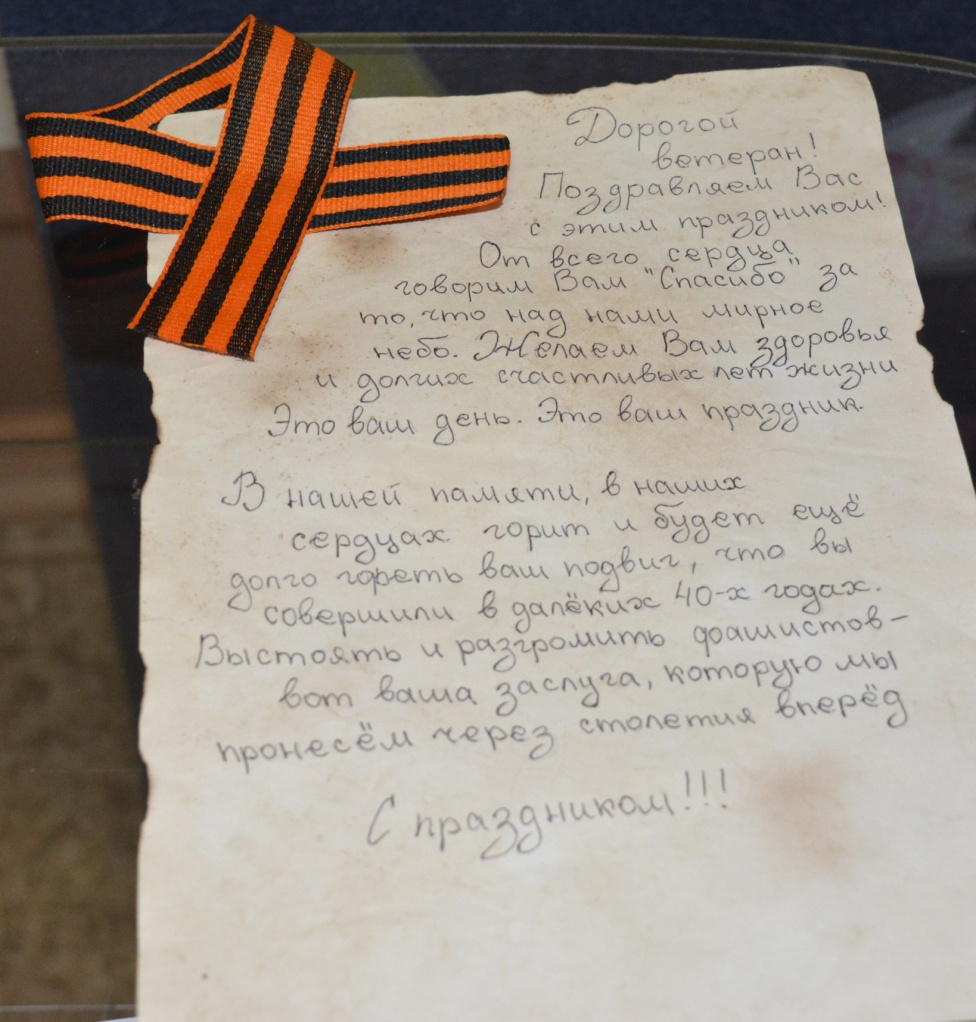 Дорогой
ветеран!
Поздравляем Вас
с этим праздником!
От всего сердца
говорим Вам "Спасибо" за
то, что над нами мирное
небо. Желаем Вам здоровья
и долгих счастливых лет жизни
Это ваш день. Это ваш праздник.
В нашей памяти, в наших
сердцах горит и будет ещё
долго гореть ваш подвиг, что вы
совершили в далёких 40-х годах.
Выстоять и разгромить фашистов-
вот ваша заслуга, которую мы
пронесём через столетия вперёд
С праздником!!!